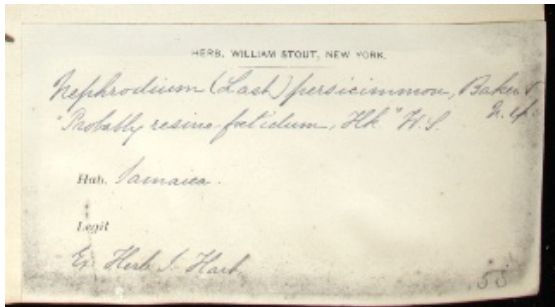 HERB. WILLIAM STOUT, NEW YORK.
Nephrodium (Last) persicinum, Baker
"Probably resino-foetidum, Hk" W.S.
Hab. Jamaica.
Legit
Ex Herb J. Hart
55